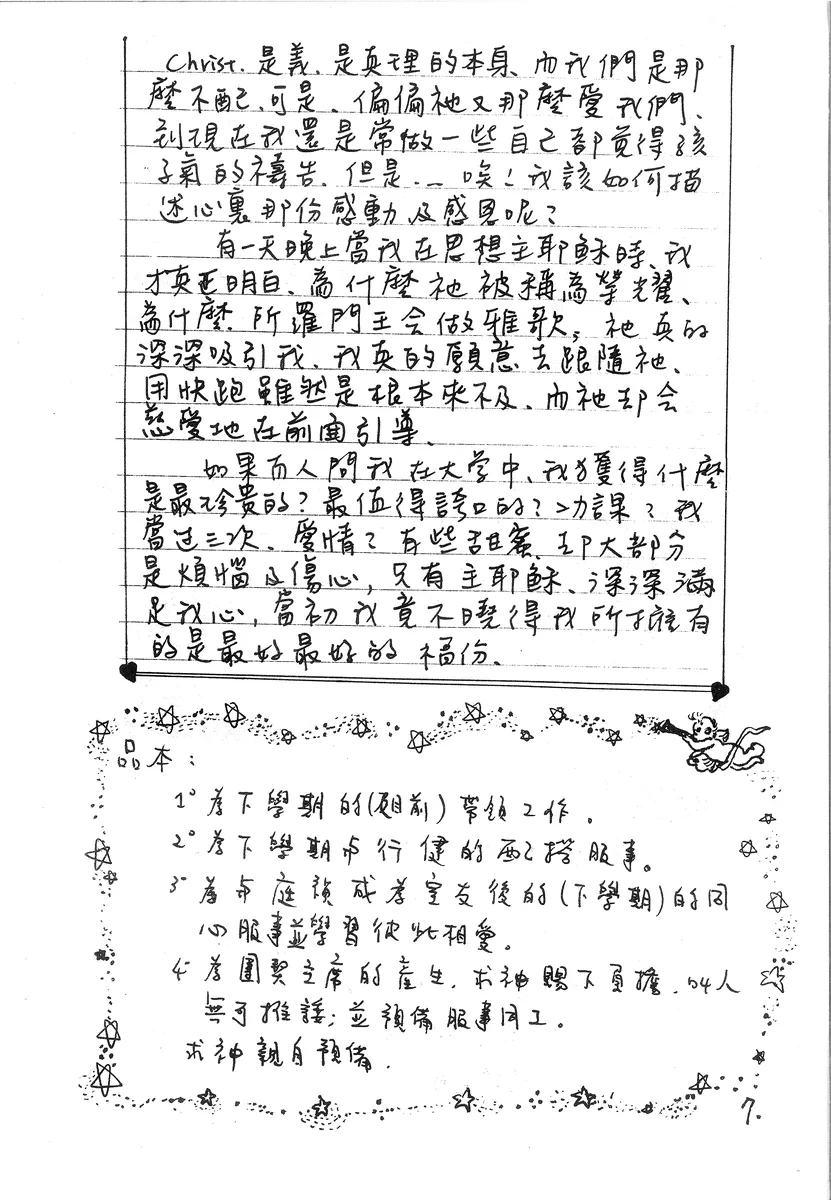 Christ. 是義、是真理的本身、而我們是那
麼不配、可是、偏偏祂又那麼愛我們、
到現在我還是常做一些自己都覺得孩
子氣的禱告、但是、… 唉！我該如何描
述心裏那份感動及感恩呢？
有一天晚上當我在思想主耶穌時、我
才真正明白、為什麼祂被稱為榮光耀、
為什麼、所羅門王会做雅歌; 祂真的
深深吸引我、我真的願意去跟隨祂、
用快跑雖然是根本來不及、而祂却会
慈愛地在前面引導、
如果而人問我在大学中、我獲得什麼
是最珍貴的？最值得誇口的？功課？我
當过三次、愛情？有些甜蜜、却大部分
是煩惱及傷心, 只有主耶穌、深深滿
足我心, 當初我竟不曉得我所擁有
的是最好最好的福份、
品本：
1° 為下學期的(目前) 帶領工作。
2° 為下學期与行健的配搭服事。
3° 為与庭禎成為室友後的(下學期)的同
心服事並學習彼此相愛。
4° 為團契主席的產生, 求神賜下負擔、叫人
無可推諉; 並預備服事同工。
求神親自預備.
7.